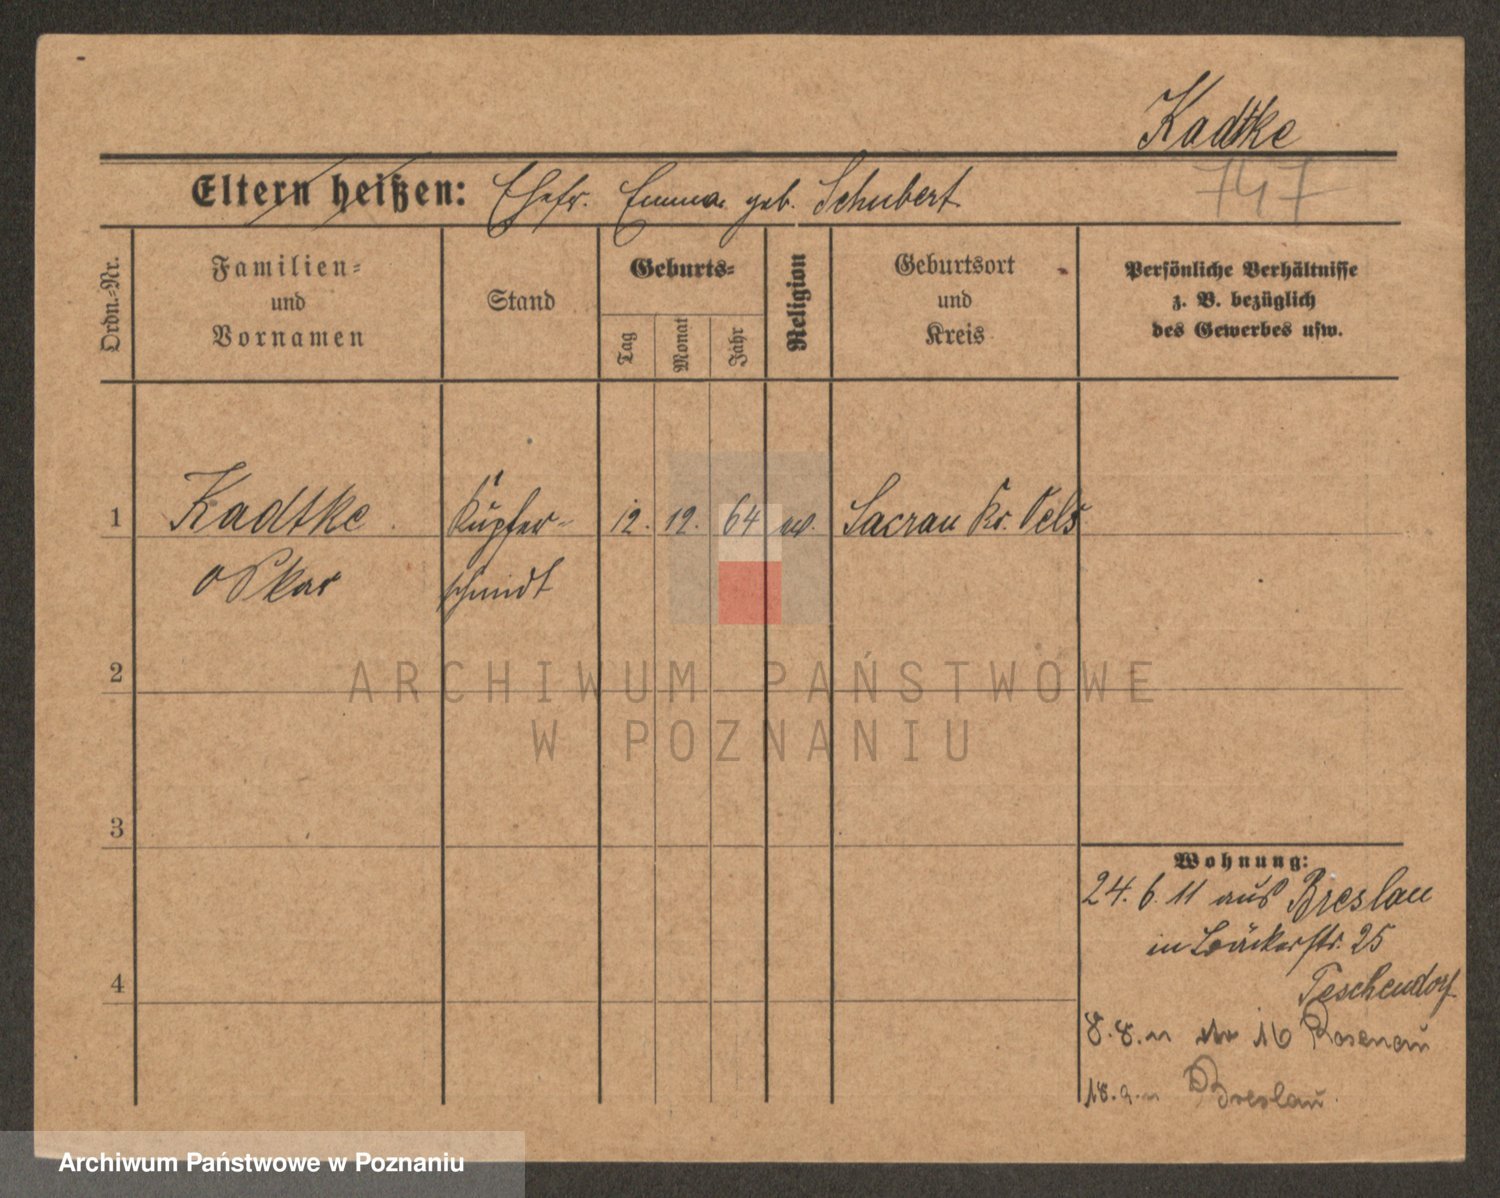 Kadtke
747
Eltern heißen: Ehefr. Emma geb. Schubert
Ordn.-Nr.
Familien-
und
Vornamen
Stand
Geburts-
Tag
Monat
Jahr
Religion
Geburtsort
und
Kreis
Persönliche Verhältnisse
z. B. bezüglich
des Gewerbes usw.
1 Kadtke. Kupfer- 12. 12. 64 ev. Sacrau Kr. Oels
Oskar schmidt
2
3
4
Wohnung:
24. 6. 11 aus Breslau
in Bäckerstr. 25
Teschendorf
8. 8. 11 16 Rosenau
18. 9. 11 Breslau
ARCHIWUM PAŃSTWOWE
W POZNANIU
Archiwum Państwowe w Poznaniu